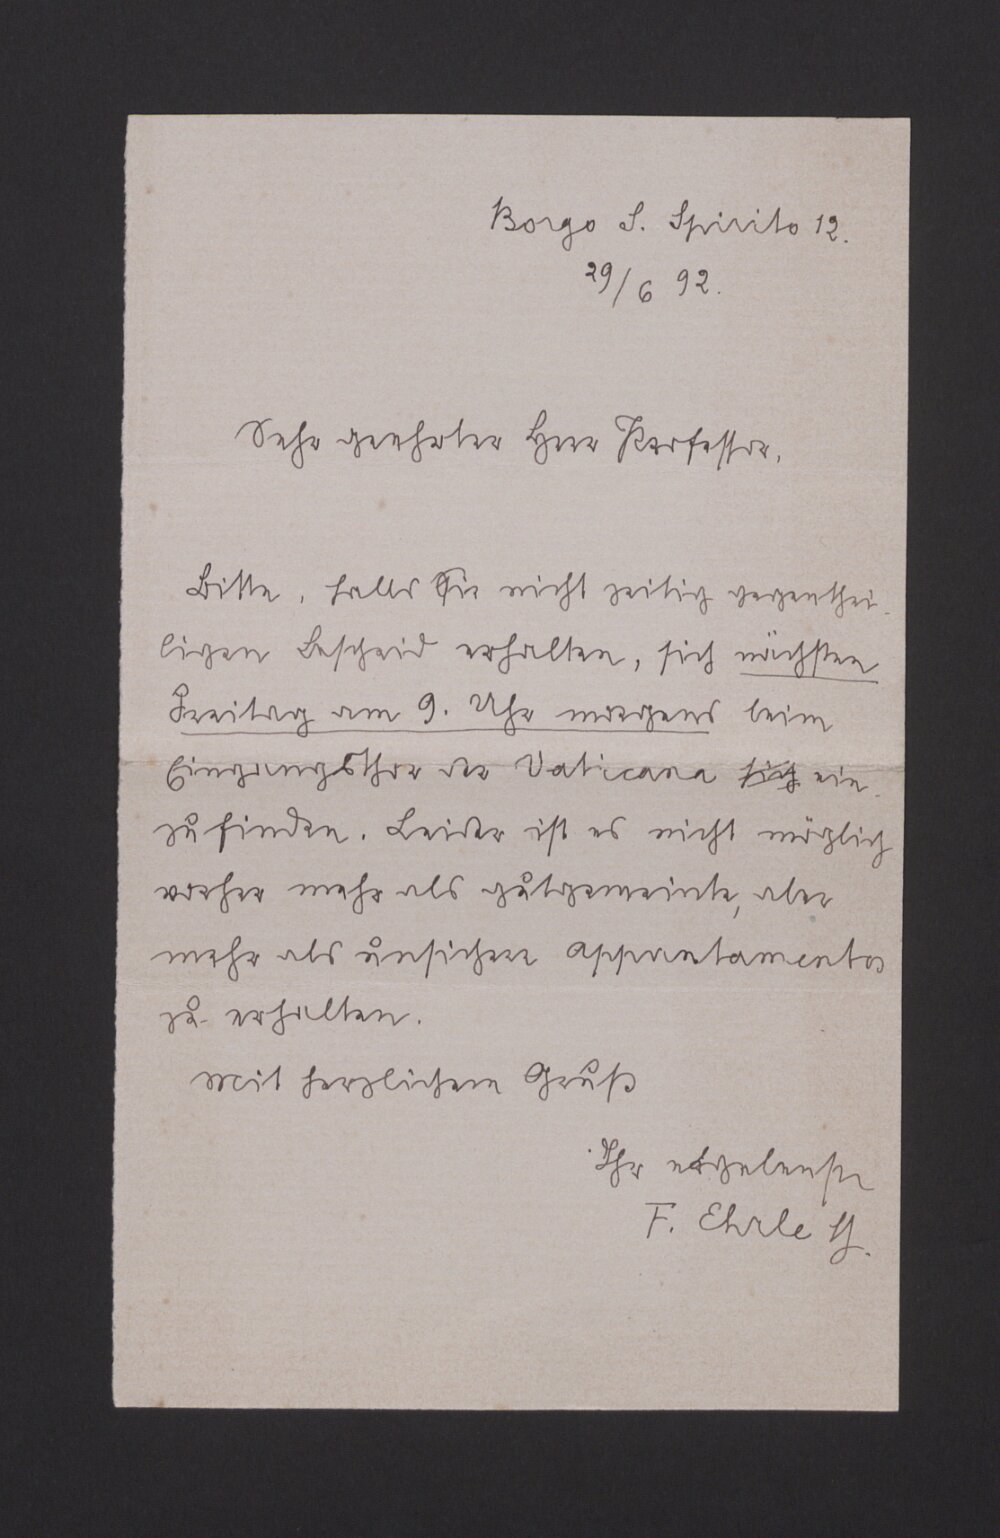 Borgo S. Spirito 12.
29/6 92.
Sehr geehrter Herr Professor.
Bitte, falls Sie nicht zeitig gegenthei-
ligen Bescheid erhalten, sich nächsten
Freitag am 9. Uhr morgens beim
Eingangsthor der Vaticana sich ein-
zufinden. Leider ist es nicht möglich
vorher mehr als gutgemeinte, aber
mehr als unsichere appuntamentos
zu erhalten.
Mit herzlichem Gruß
Ihr ergebenster
F. Ehrle SJ.